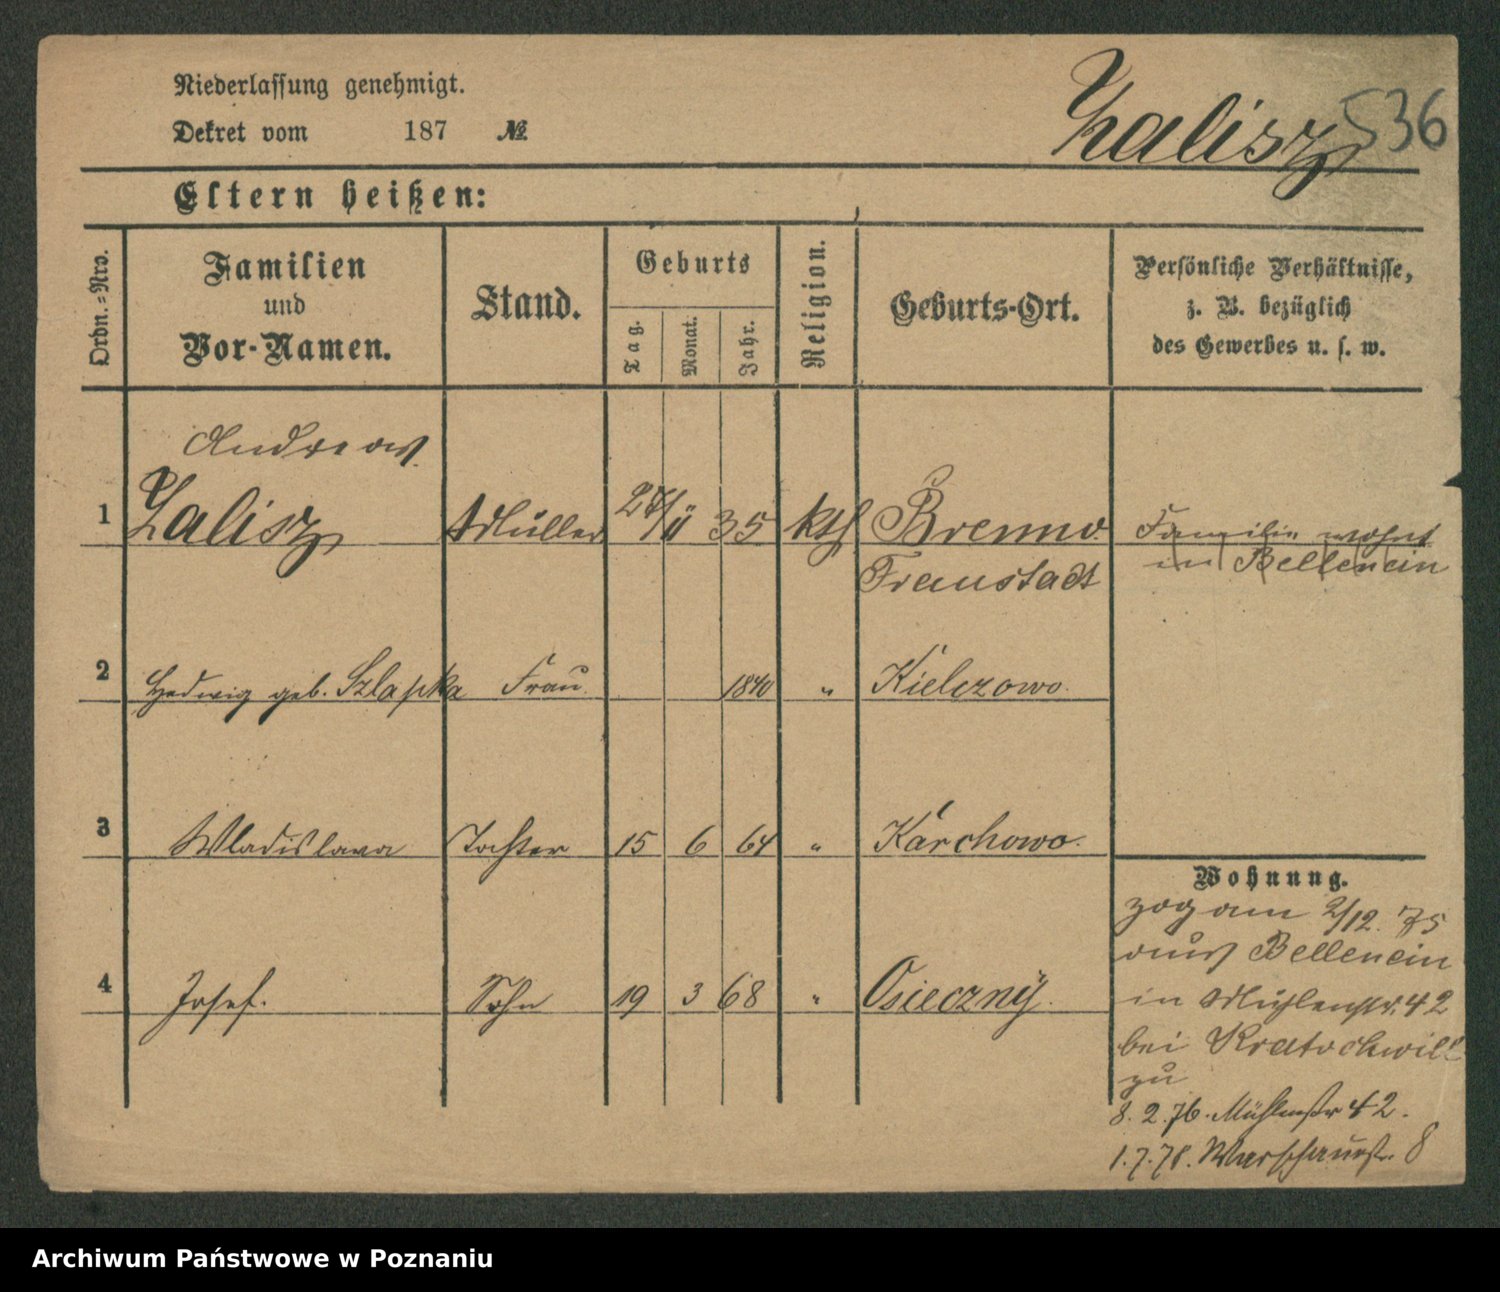 Niederlassung genehmigt.
Dekret vom 187 № 
Zalisz 536
Eltern heißen:
Ordn.-Nro.
Familien
und
Vor-Namen.
Stand.
Geburts
Tag.
Monat.
Jahr.
Religion.
Geburts-Ort.
Persönliche Verhältnisse,
z. B. bezüglich
des Gewerbes u. s. w.
Andreas
1 Zalisz Müller 35 kth Brenno
Fraustadt
Familie wohnt
in Bellencin
2 Hedwig geb. Szlapka Frau 1840 " Kielczowo.
3 Wladislava Tochter 15 6 64 " Karchowo.
4 Josef. Sohn 19 3 68 " Osieczny.
Wohnung.
zog am 2/12. 75
aus Bellencin
in Mühlenstr. 42
bei Kratochwill
zu
8. 2. 76. Mühlenstr 42.
1. 7. 78. Warschauerstr. 8
Archiwum Państwowe w Poznaniu